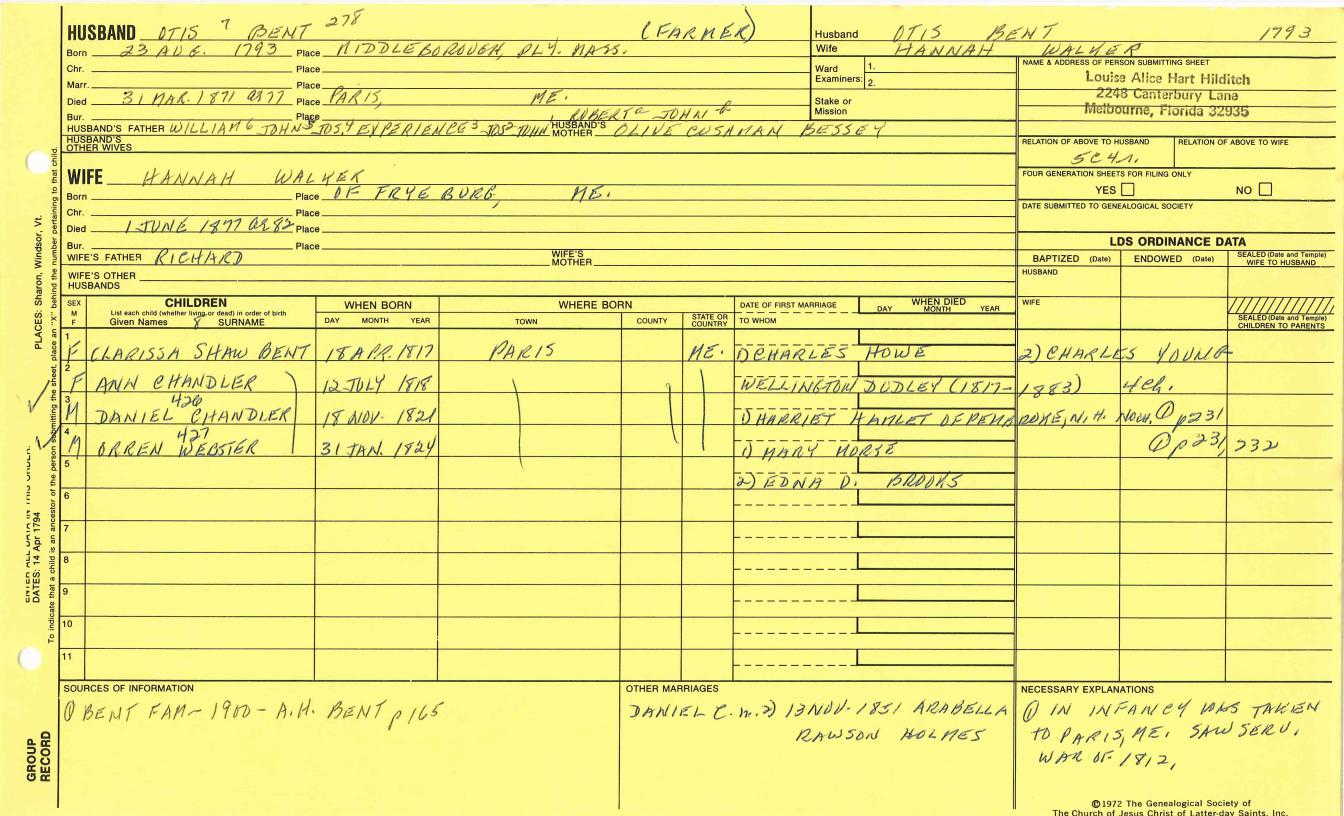 HUSBAND OTIS 7 BENT 278 (FARMER)
Born 23 AUG. 1793 Place MIDDLEBOROUGH, PLY. MASS.
Chr. Place
Marr. Place
Died 31 MAR. 1871 AE 77 Place PARIS, ME.
Bur. Place
HUSBAND'S FATHER WILLIAM 6 JOHN 5 JOS. 4 EXPERIENCE 3 JOS 2 JOHN 1, ROBERT a JOHN b HUSBAND'S MOTHER OLIVE CUSHMAN BESSEY
HUSBAND'S OTHER WIVES
WIFE HANNAH WALKER
Born Place OF FRYEBURG, ME.
Chr. Place
Died 1 JUNE 1877 AE 82 Place
Bur. Place
WIFE'S FATHER RICHARD WIFE'S MOTHER
WIFE'S OTHER HUSBANDS
Husband OTIS BENT 1793
Wife HANNAH WALKER
Ward Examiners: 1. 2.
Stake or Mission
NAME & ADDRESS OF PERSON SUBMITTING SHEET
Louise Alice Hart Hilditch
2248 Canterbury Lane
Melbourne, Florida 32935
RELATION OF ABOVE TO HUSBAND RELATION OF ABOVE TO WIFE
5C4r.
FOUR GENERATION SHEETS FOR FILING ONLY
YES NO
DATE SUBMITTED TO GENEALOGICAL SOCIETY
LDS ORDINANCE DATA
BAPTIZED (Date) ENDOWED (Date) SEALED (Date and Temple) WIFE TO HUSBAND
HUSBAND
WIFE
SEALED (Date and Temple) CHILDREN TO PARENTS
SEX M F CHILDREN WHEN BORN WHERE BORN DATE OF FIRST MARRIAGE WHEN DIED
List each child (whether living or dead) in order of birth
Given Names 8 SURNAME DAY MONTH YEAR TOWN COUNTY STATE OR COUNTRY TO WHOM DAY MONTH YEAR
1 F CLARISSA SHAW BENT 18 APR. 1817 PARIS ME. 1) CHARLES HOWE 2) CHARLES YOUNG
2 F ANN CHANDLER 12 JULY 1818 WELLINGTON DUDLEY (1817-1883) 4 ch.
426
3 M DANIEL CHANDLER 18 NOV. 1821 1) HARRIET HAMLET OF PEMBROKE, N.H. ① p231
427
4 M ORREN WEBSTER 31 JAN. 1824 1) MARY MORSE ① p231, 232
5 2) EDNA D. BROOKS
6
7
8
9
10
11
SOURCES OF INFORMATION
① BENT FAM - 1900 - A.H. BENT p165
OTHER MARRIAGES
DANIEL C. m. 2) 13 NOV. 1851 ARABELLA
RAWSON HOLMES
NECESSARY EXPLANATIONS
① IN INFANCY WAS TAKEN
TO PARIS, ME. SAW SERV.
WAR OF 1812,
©1972 The Genealogical Society of
The Church of Jesus Christ of Latter-day Saints, Inc.
GROUP RECORD
ENTER ALL DATA IN THIS ORDER:
DATES: 14 Apr 1794
PLACES: Sharon, Windsor, Vt.
To indicate that a child is an ancestor of the person submitting the sheet, place an "X" behind the number pertaining to that child.